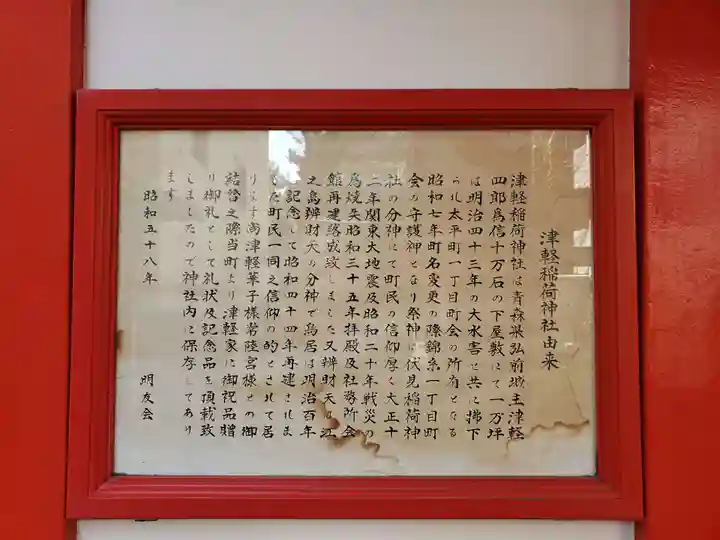 津軽稲荷神社由来
津軽稲荷神社は青森県弘前城主津軽
四郎為信十万石の下屋敷にて一万坪
は明治四十三年の大水害と共に拂下
られ太平町一丁目町会の所有となる
昭和七年町名変更の際錦糸一丁目町
会の守護神となり祭神は伏見稲荷神
社の分神にて町民の信仰厚く大正十
二年関東大地震及昭和二十年戦災の
為焼失昭和三十五年拝殿及社務所会
館再建落成致しました又辨財天は江
之島辨財天の分神で鳥居は明治百年
を記念して昭和四十四年再建されま
した町民一同之信仰の的とされて居
ります尚津軽華子様常陸宮様との御
結婚之際当町より津軽家に御祝品贈
り御礼として礼状及記念品を頂載致
しましたので神社内に保存してあり
ます
昭和五十八年 明友会